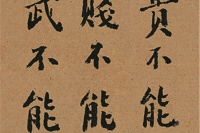 貴不能
賤不能
武不能